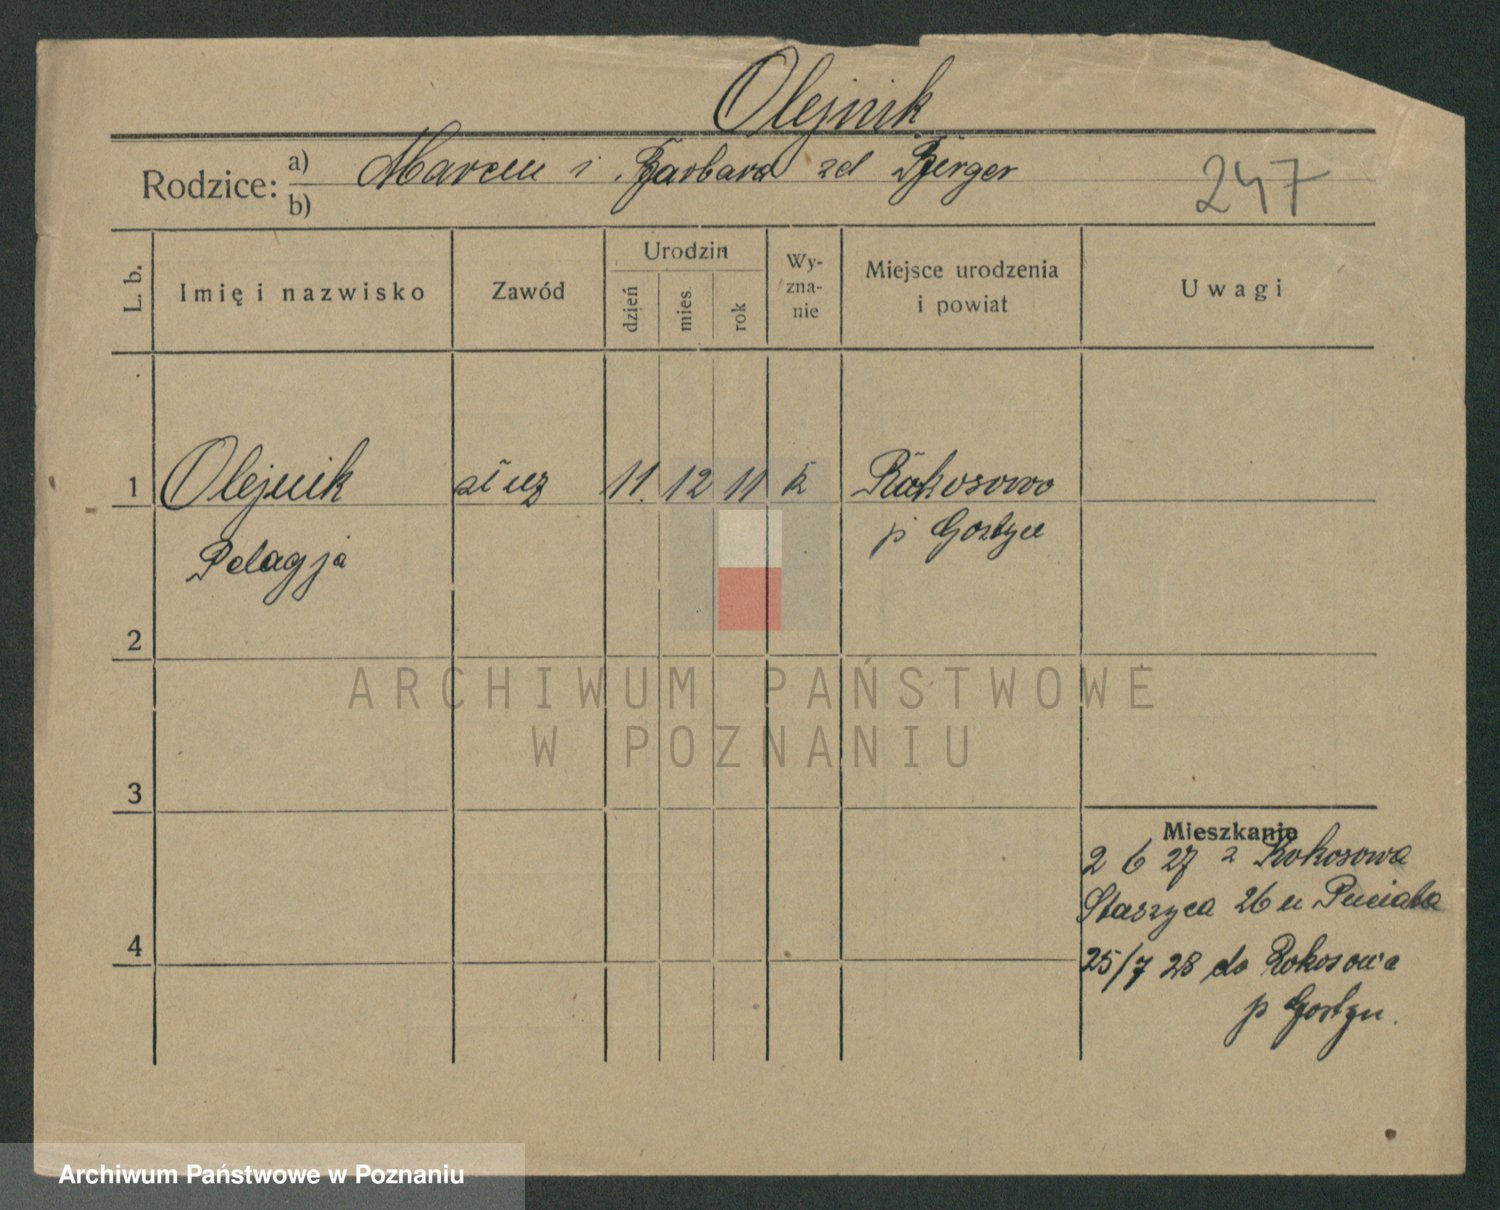 Olejnik
Rodzice: a) Marcin i Barbara zd Berger
b)
247
L. b.
Imię i nazwisko
Zawód
Urodzin
dzień
mies.
rok
Wy-
zna-
nie
Miejsce urodzenia
i powiat
Uwagi
1 Olejnik 11. 12 11 k Rokosowo
Pelagja p Gostyń
2
3
4
Mieszkanie
2 6 27 z Rokosowa
Staszyca 26 u
25/7 28 do Rokosowa
p Gostyn.
ARCHIWUM PAŃSTWOWE
W POZNANIU
Archiwum Państwowe w Poznaniu